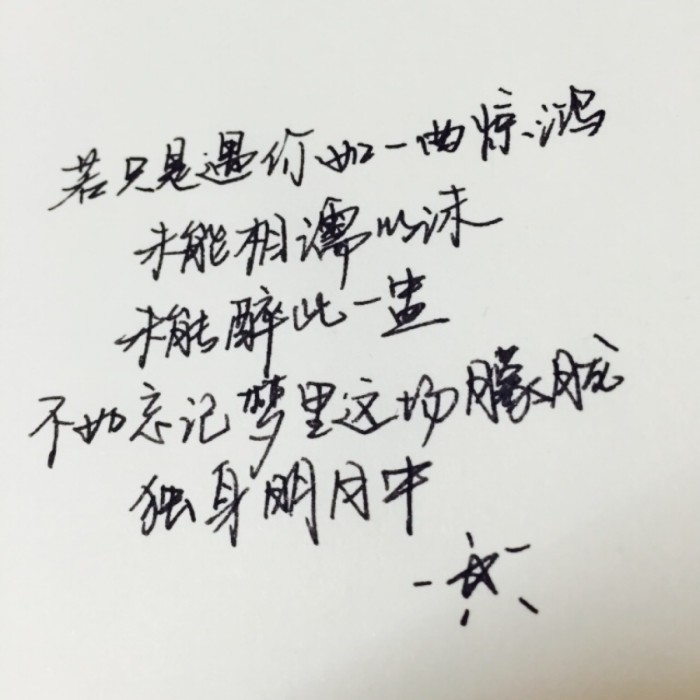 若只是遇你如一曲惊鸿
未能相濡以沫
未能醉此一盅
不如忘记梦里这场朦胧
独身明月中